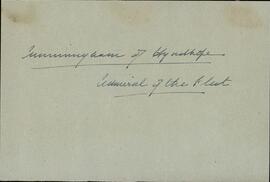 Cunningham of Hyndhope
Admiral of the Fleet